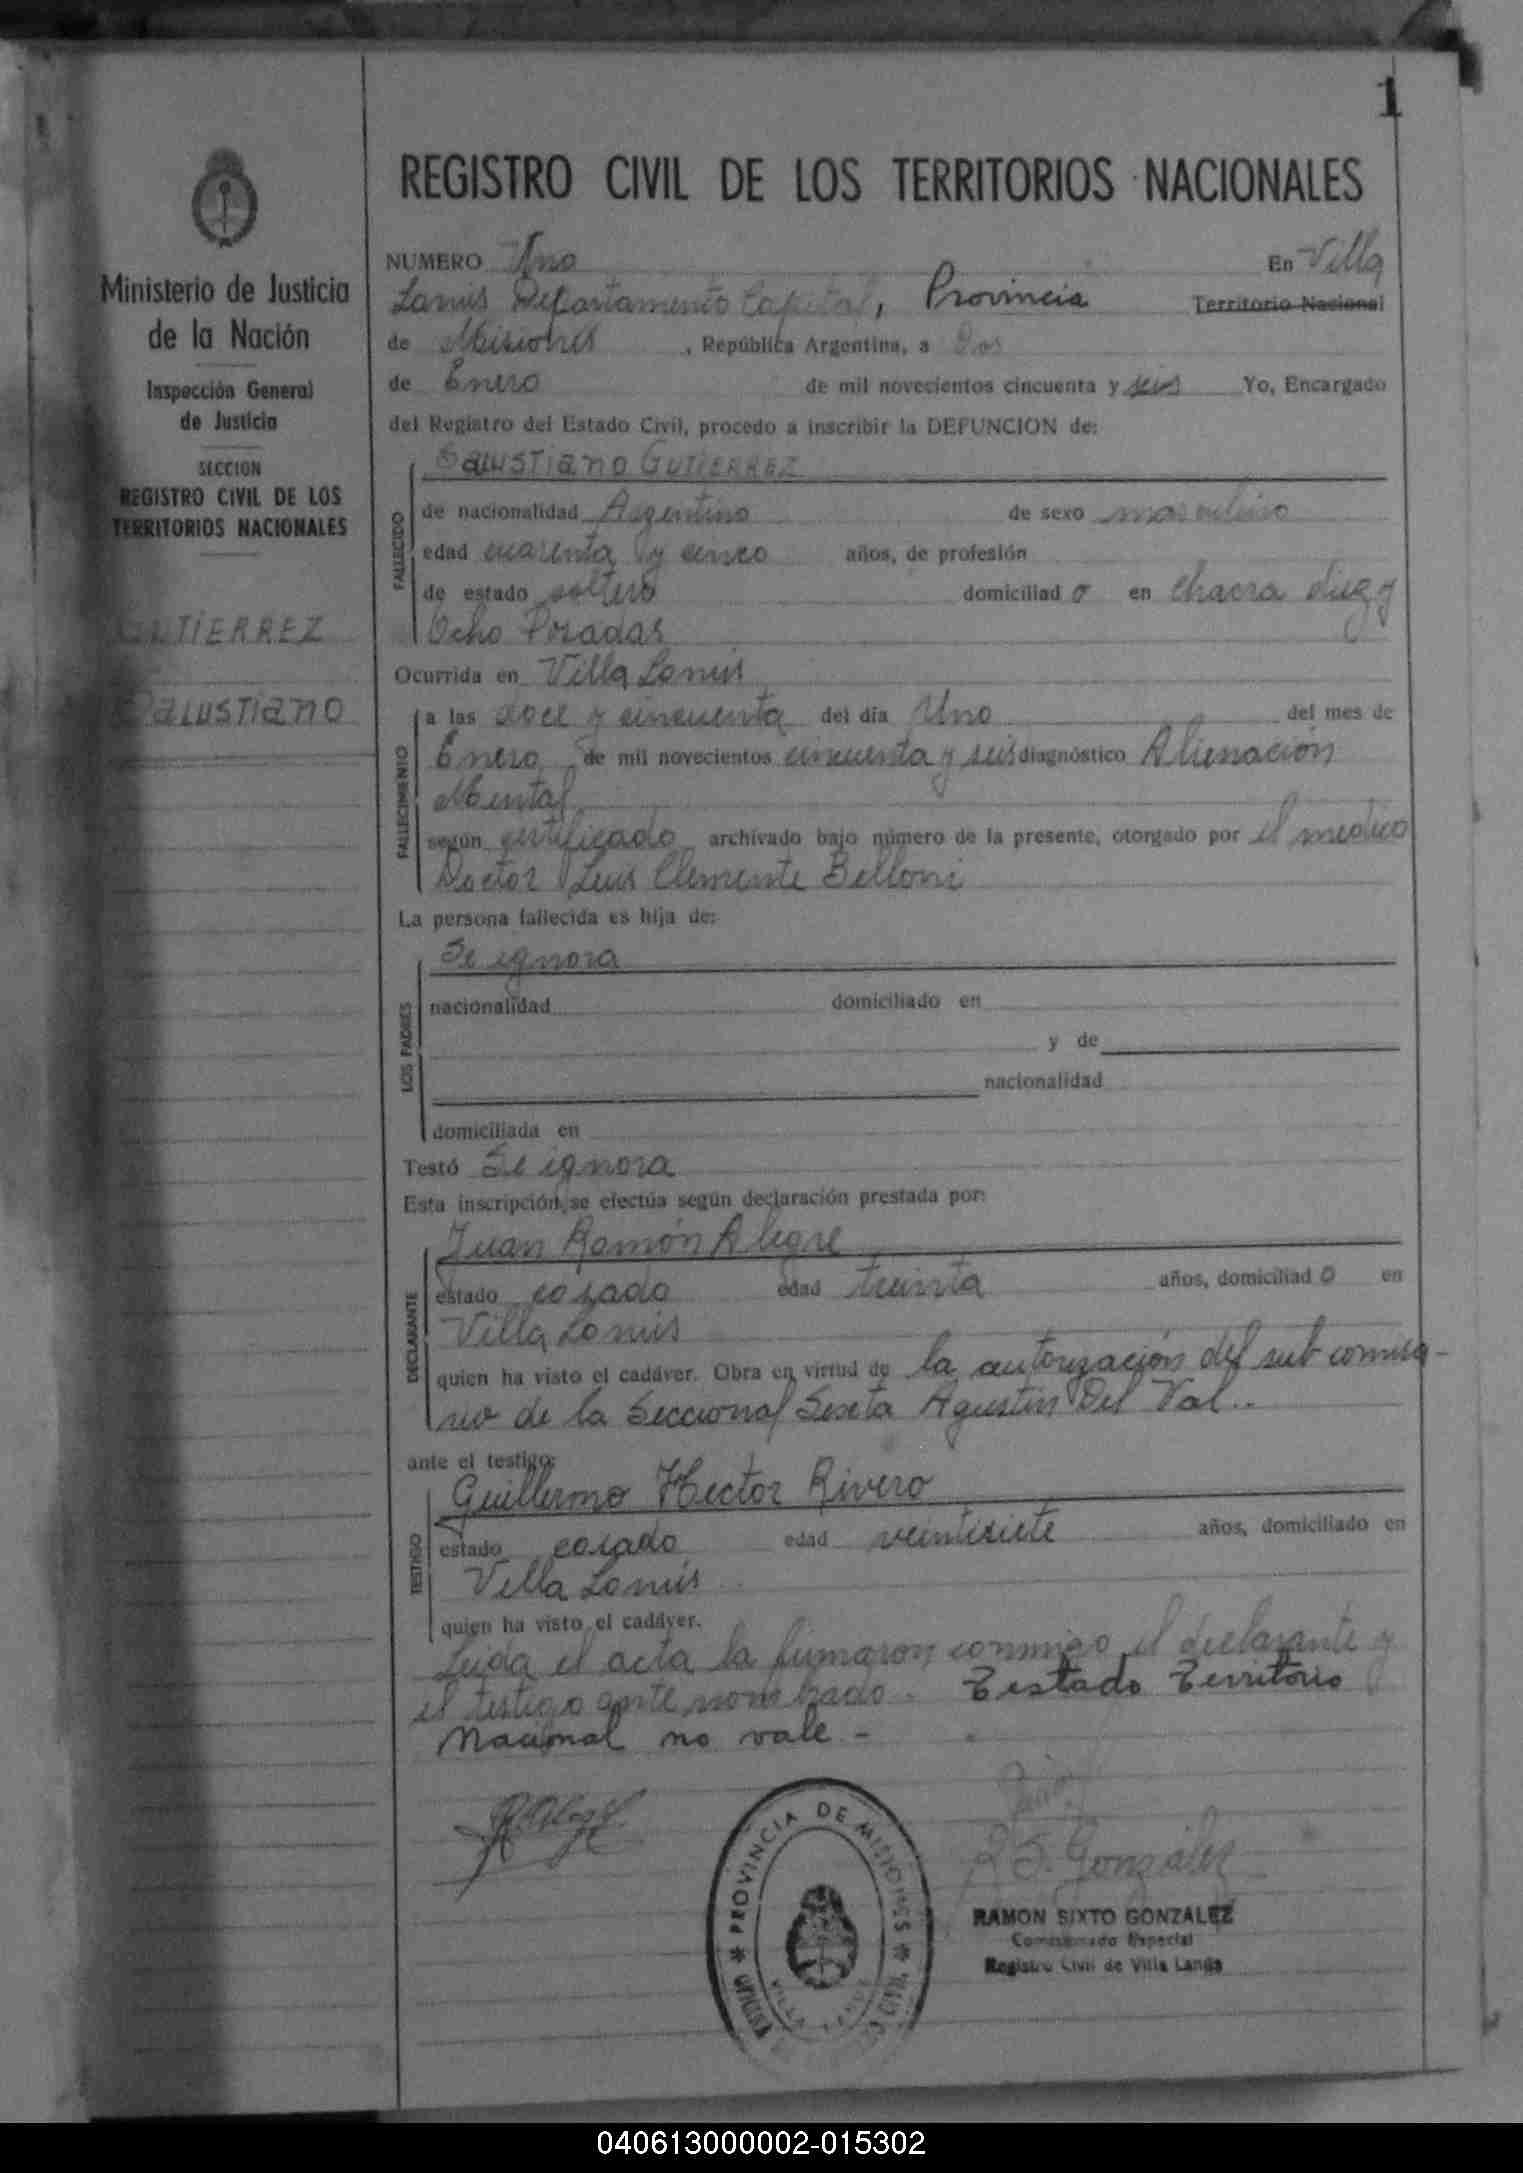 1
REGISTRO CIVIL DE LOS TERRITORIOS NACIONALES
Ministerio de Justicia
de la Nación
Inspección General
de Justicia
SECCION
REGISTRO CIVIL DE LOS
TERRITORIOS NACIONALES
GUTIERREZ
Salustiano
NUMERO Uno En Villa
Lanús Departamento Capital, Provincia Territorio Nacional
de Misiones, República Argentina, a Dos
de Enero de mil novecientos cincuenta y seis Yo, Encargado
del Registro del Estado Civil, procedo a inscribir la DEFUNCION de:
Salustiano GUTIERREZ
FALLECIDO
de nacionalidad Argentino de sexo masculino
edad cuarenta y cinco años, de profesión
de estado soltero domiciliado en Chacra diez y
Ocho Posadas
Ocurrida en Villa Lanús
FALLECIMIENTO
a las doce y cincuenta del día Uno del mes de
Enero de mil novecientos cincuenta y seis diagnóstico Alienación
Mental
según certificado archivado bajo número de la presente, otorgado por el medico
Doctor Luis Clemente Belloni
La persona fallecida es hija de:
Se ignora
LOS PADRES
nacionalidad domiciliado en
y de
nacionalidad
domiciliada en
Testó Se ignora
Esta inscripción, se efectúa según declaración prestada por:
Juan Ramón Alegre
DECLARANTE
estado casado edad treinta años, domiciliado en
Villa Lanús
quien ha visto el cadáver. Obra en virtud de la autorización del sub comisa-
rio de la Seccional Sexta Agustín Del Val..
ante el testigo:
Guillermo Hector Rivero
TESTIGO
estado casado edad veintisiete años, domiciliado en
Villa Lanús
quien ha visto el cadáver.
Leida el acta la firmaron conmigo el declarante y
el testigo ante nombrado. Testado Territorio
Nacional no vale -
PROVINCIA DE MISIONES
R S. González
RAMON SIXTO GONZALEZ
Comisionado Especial
Registro Civil de Villa Lanús
040613000002-015302